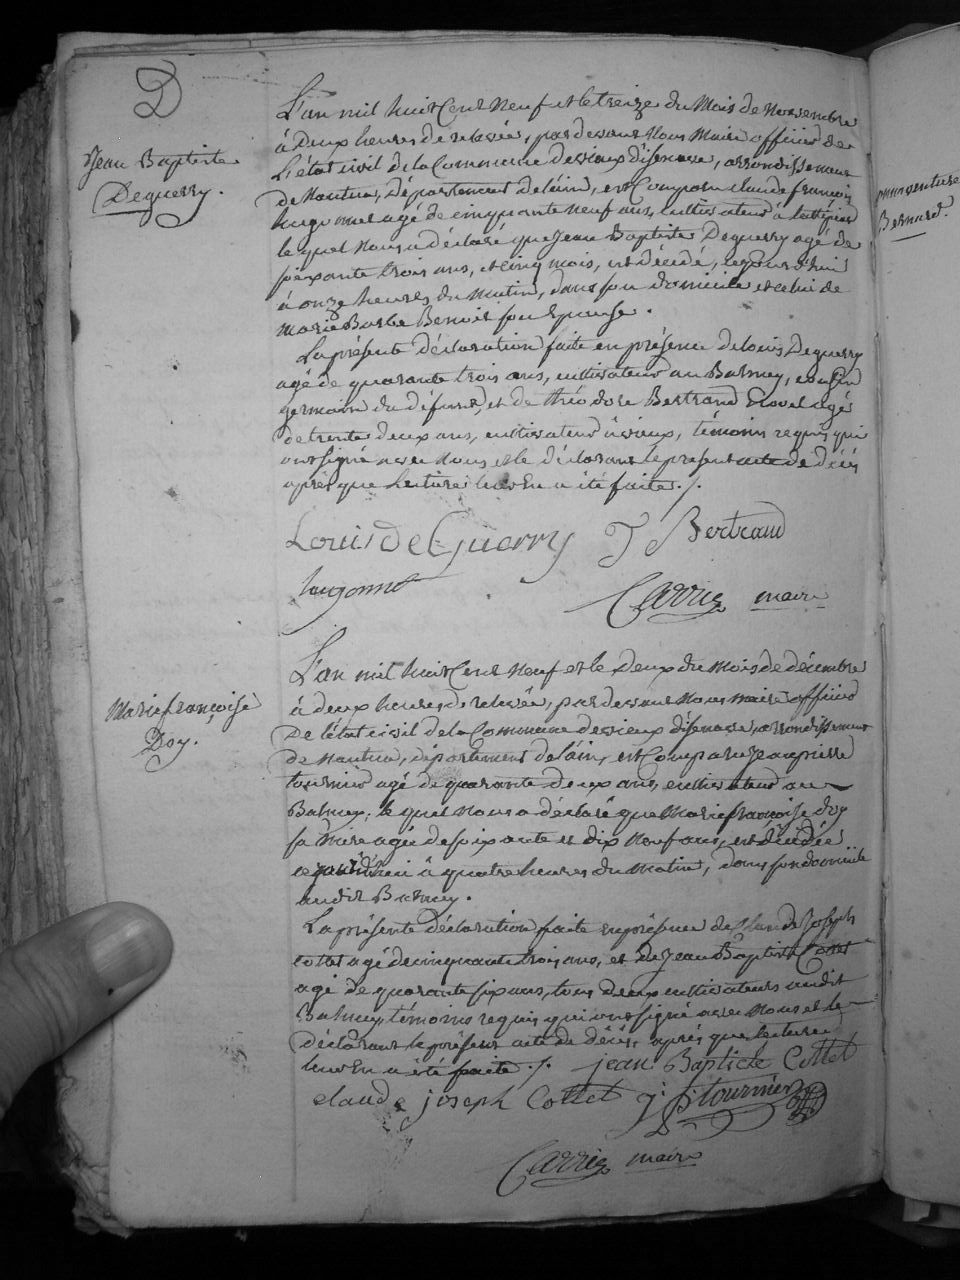 D
Jean Baptiste
Deguerry.
L'an mil huit Cent Neuf et le treize du Mois de Novembre
à Deux heures de relevée, par devant Nous Maire officier de
L'état civil de la Commune de Sieux d'isenave, arrondissement
de Nantua, Département de l'ain, est Comparu claude françois
hugonnet agé de cinquante neuf ans, cultivateur à
le quel Nous a déclaré que Jean Baptiste Deguerry agé de
soixante trois ans, et cinq mois, est décédé, cejourd'hui
à onze heures du Matin, dans son domicile et celui de
Marie Barbe Benoit son Epouse.
La présente déclaration faite en présence de louis Deguerry
agé de quarante trois ans, cultivateur au Balmey, cousin
germain du défunt, et de théodore Bertrand agé
de trente deux ans, cultivateur à vieux, témoins requis qui
ont signé avec Nous et le déclarant le présent acte de décès
après que Lecture leur En a été faite ./.
Louis de Guerry J Bertrand
hugonnet
Carrier maire
Marie françoise
Doy.
L'an mil huit Cent Neuf et le Deux du Mois de décembre
à deux heures de relevée, par devant Nous maire officier
De l'état civil de la Commune de vieux d'isenave, arrondissement
de Nantua, département de l'ain, est Comparu Jean pierre
tournier agé de quarante deux ans, cultivateur au
Balmey, le quel Nous a déclaré que Marie françoise doy
sa Mère agée de soixante et dix Neuf ans, est décédée
cejourd'hui à quatre heures du Matin, dans son domicile
audit Balmey.
La présente déclaration faite en présence de Claude Joseph
Cottet agé de cinquante trois ans, et de Jean Baptiste Cottet
agé de quarante six ans, tous Deux cultivateurs audit
Balmey, témoins requis qui ont signé avec Nous et le
déclarant le présent acte de décès, après que lecture
leur En a été faite ./. jean Baptiste Cottet
claude joseph Cottet j. p. tournier
Carrier maire
Bernard.